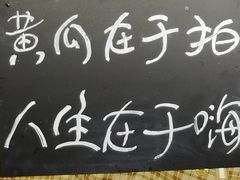 黄瓜在于拍
人生在于嗨